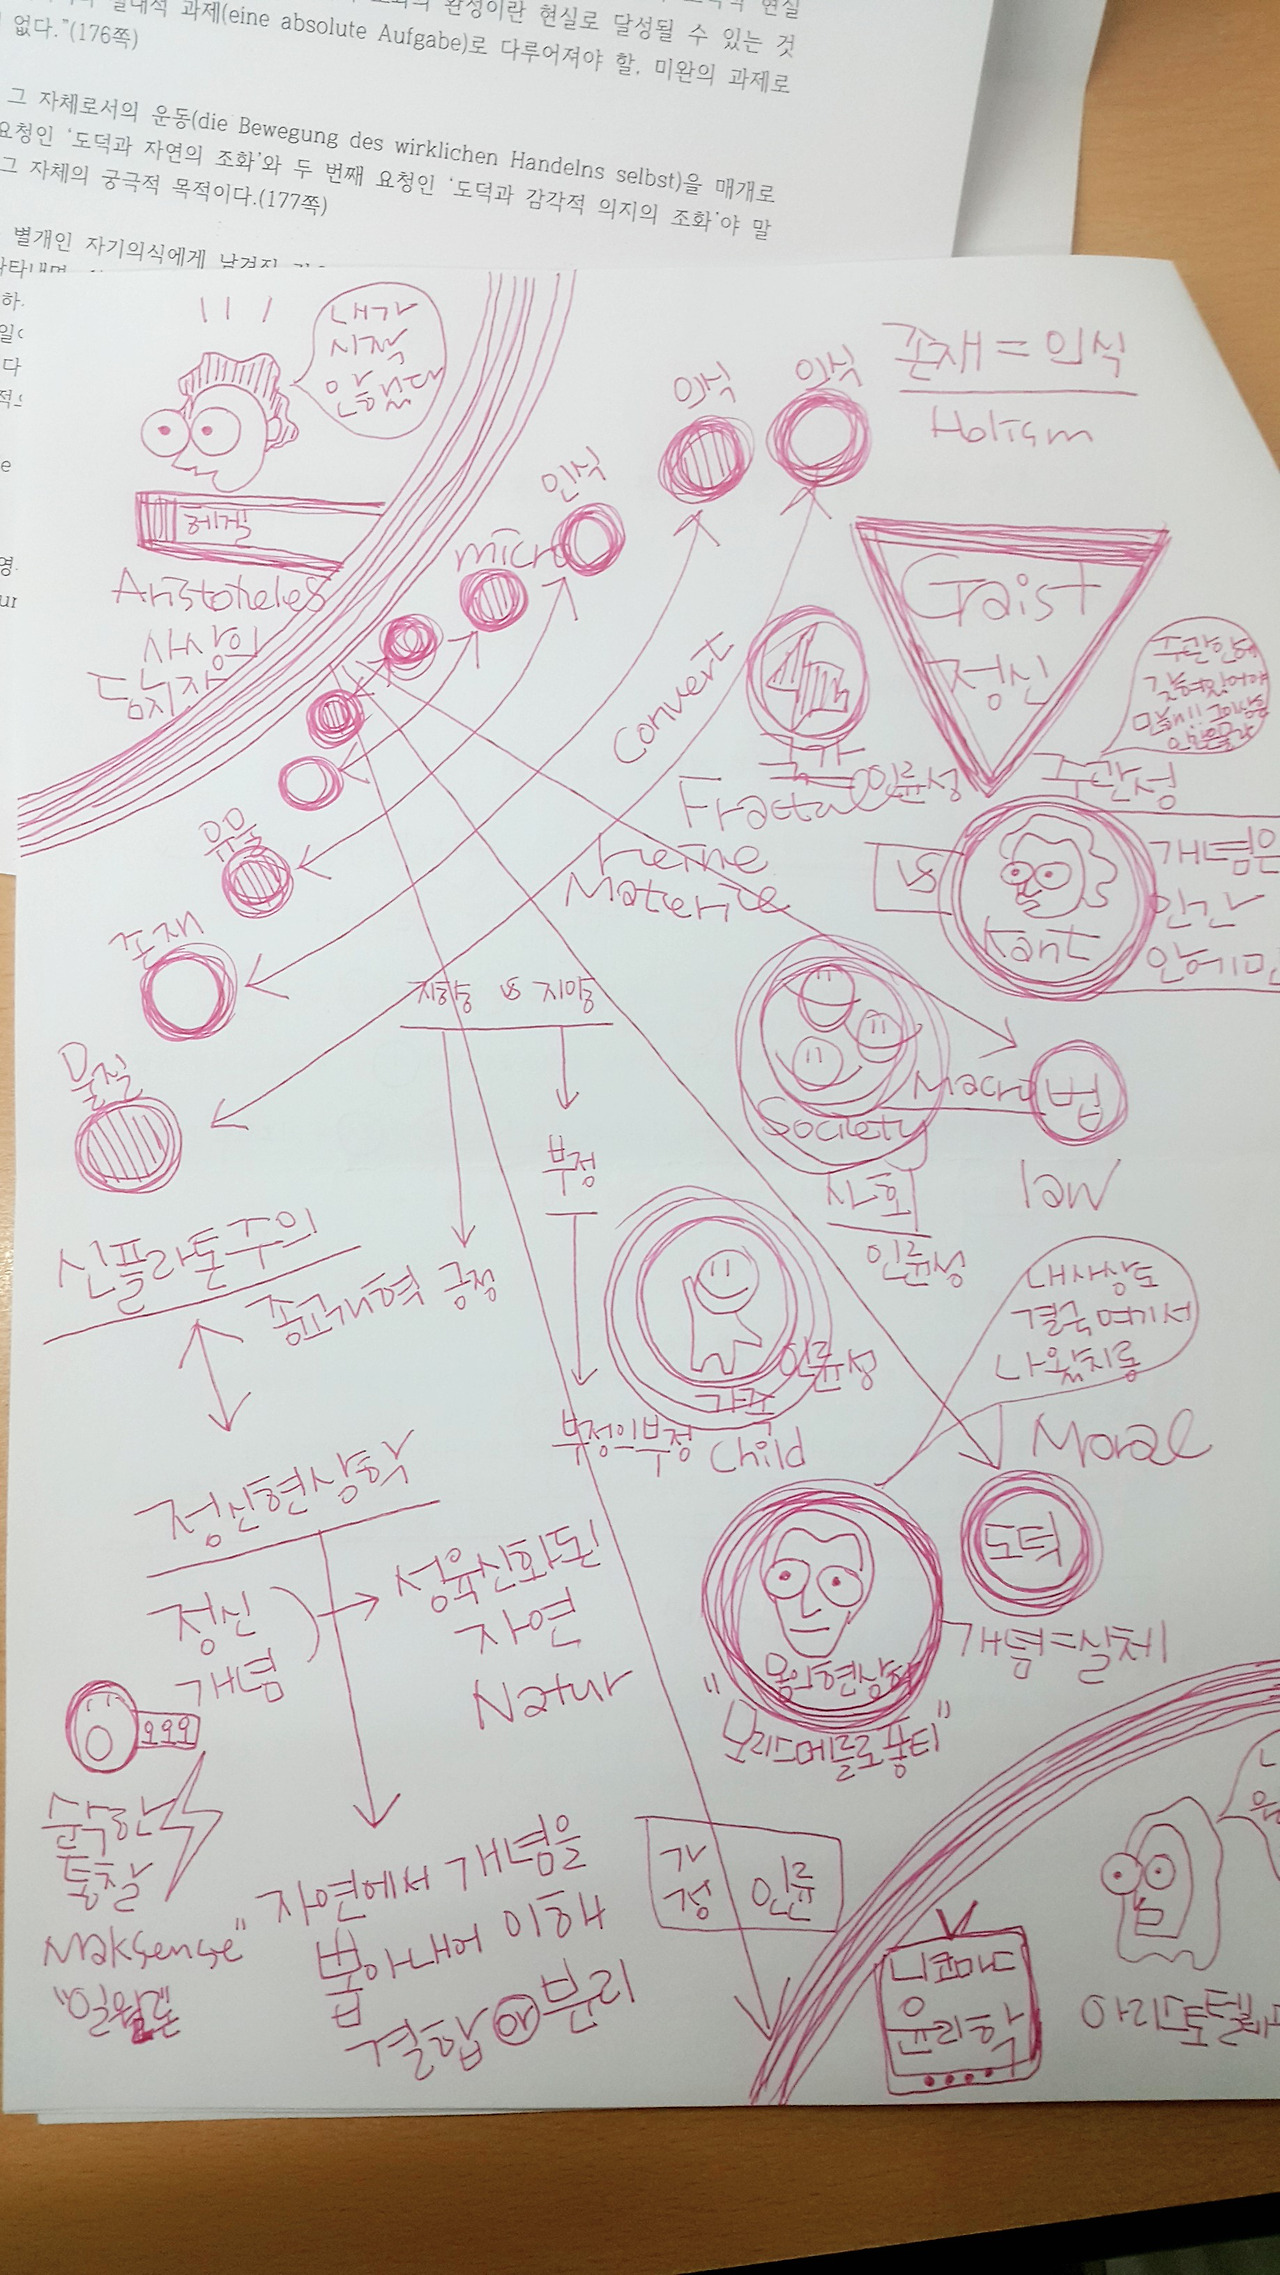 절대적 과제(eine absolute Aufgabe)로 다루어져야 할, 미완의 과제로
완성이란 현실로 달성될 수 있는 것
없다."(176쪽)
그 자체로서의 운동(die Bewegung des wirklichen Handelns selbst)을 매개로
요청인 '도덕과 자연의 조화'와 두 번째 요청인 '도덕과 감각적 의지의 조화'야 말
그 자체의 궁극적 목적이다.(177쪽)
별개인 자기의식에게
내가
시작
안했습니다
헤겔
Aristoteles
사상의
존재 = 인식
Holism
인식
인식
인식
micro
Convert
Gaist
정신
주관성
국가
인륜성
Fractal
reine
Materie
vs
Kant
개념은
인간
안에만
유물
존재
물질
지하승 vs 지이승
부정
부정의부정
긍정
종교개혁
신플라톤주의
Macro
법
law
Society
사회
인륜성
가족
인륜성
Child
내사상도
결국여기서
나왔지롱
Moral
도덕
개념=실체
몸의현상학
"모리스메를로퐁티"
정신현상학
정신
개념
성육신화된
자연
Natur
순수한
통찰
Maksense"
자연에서 개념을
뽑아내어 이해
결합 vs 분리
가정
인륜
니코마스
윤리학
아리스토텔레